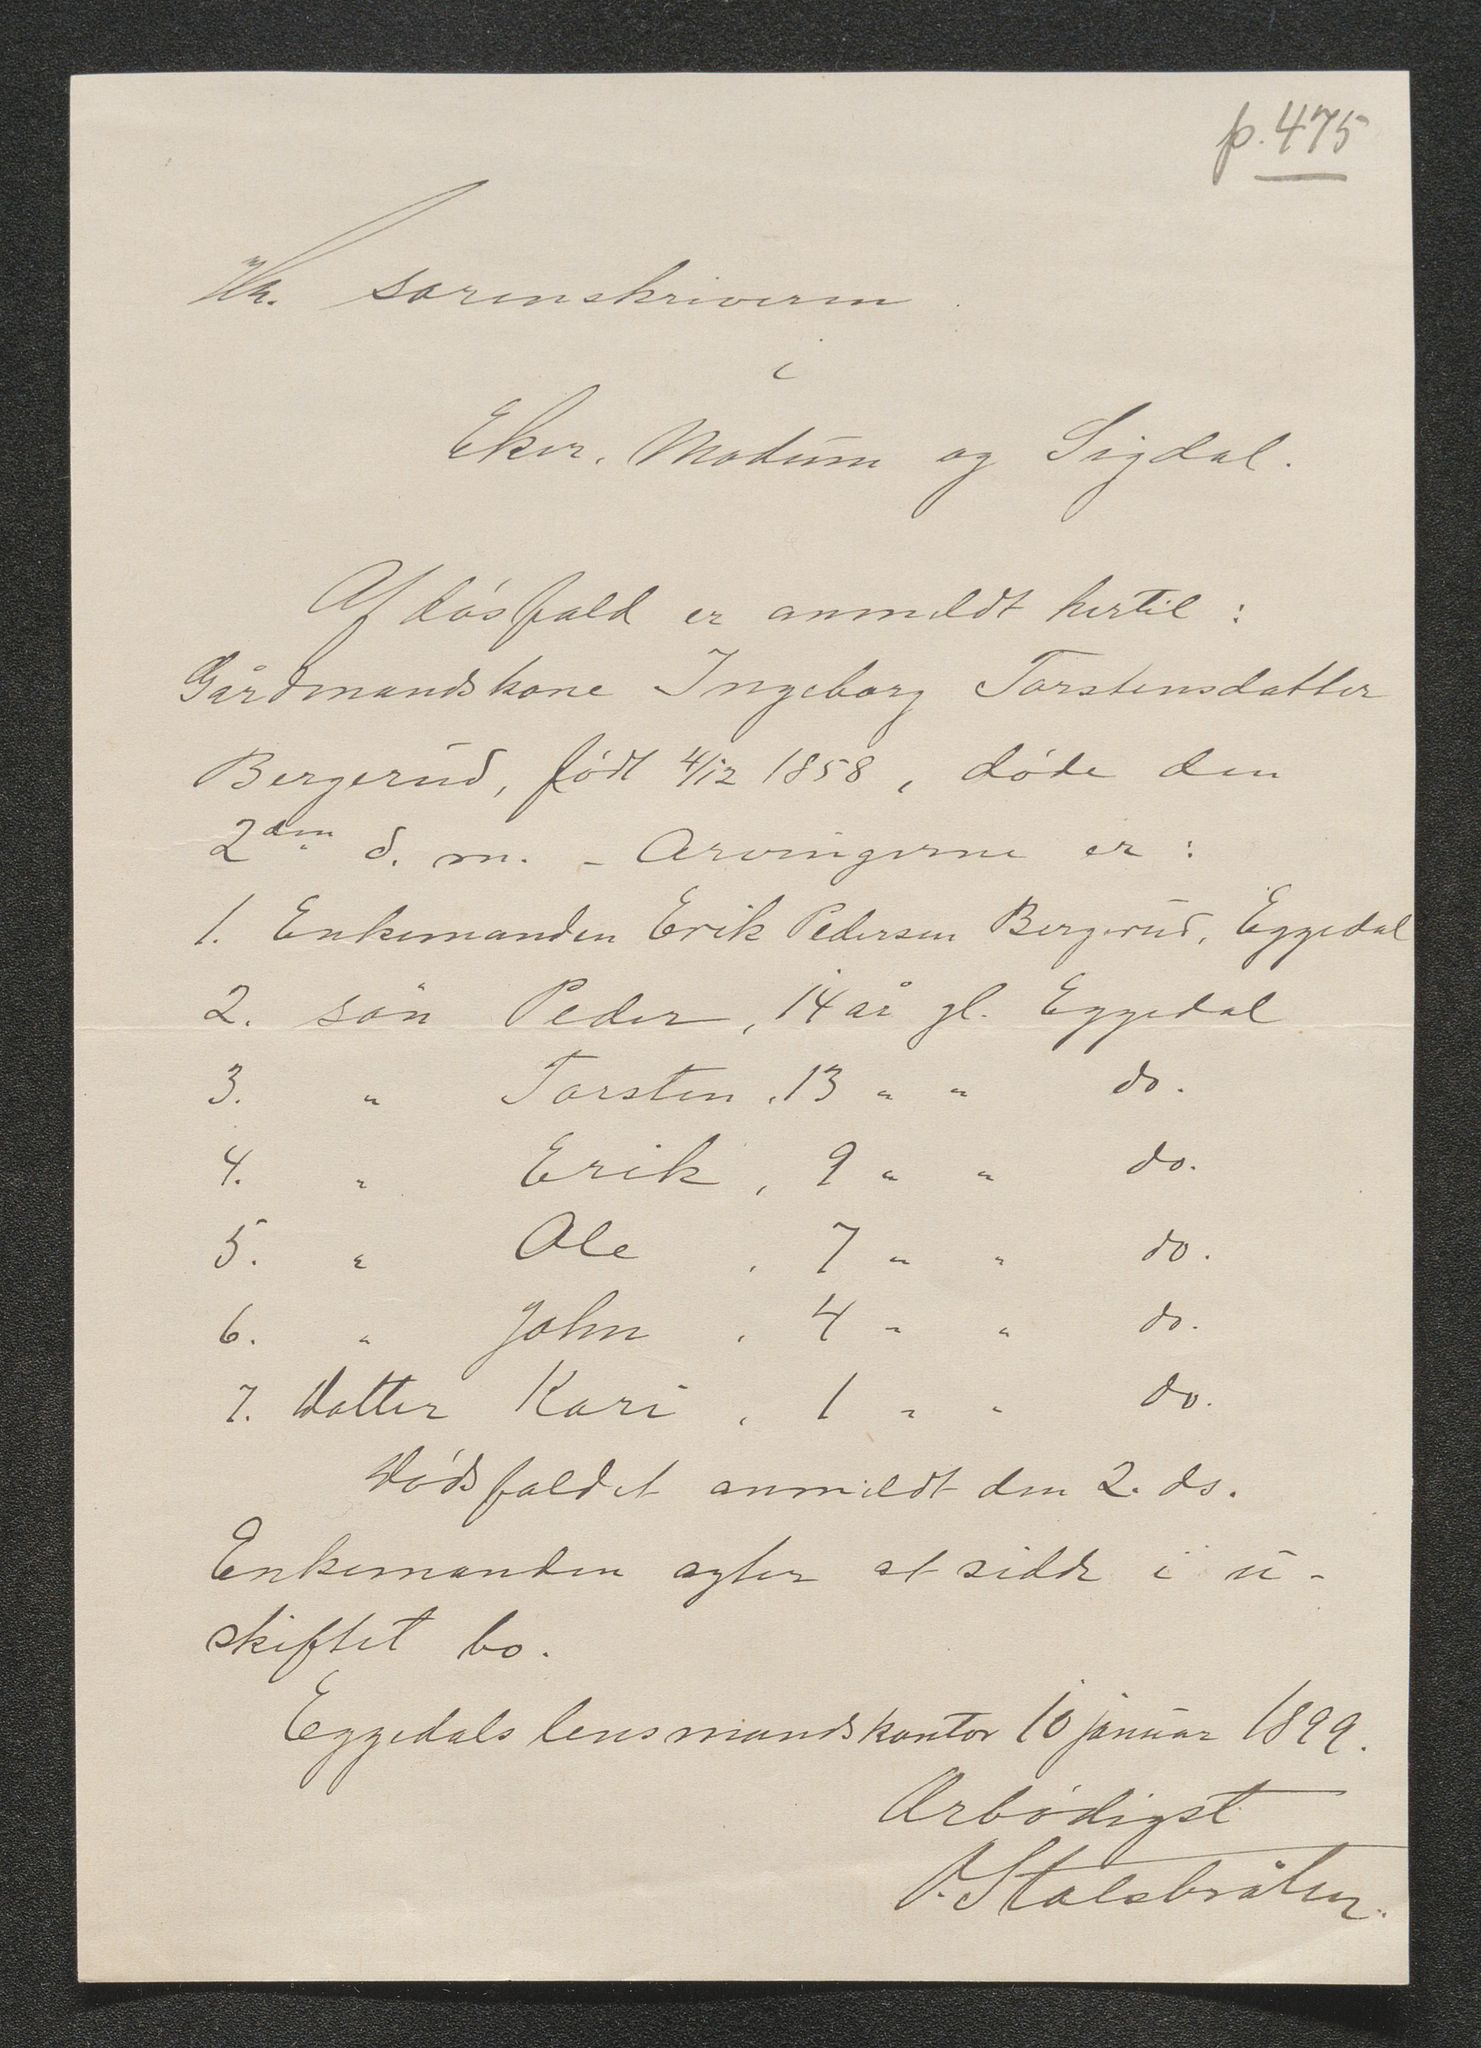 p. 475
Hr. sorenskriveren
i
Eker, Modum og Sigdal.
Af døsfald er anmeldt hertil:
Gårdmandskone Ingeborg Torstensdatter
Bergerud, født 4/12 1858, døde den
2den d. m. - Arvingerne er:
1. Enkemanden Erik Pedersen Bergerud, Eggedal
2. søn Peder, 14 år gl. Eggedal
3. " Torsten, 13 " " do.
4. " Erik, 9 " " do.
5. " Ole, 7 " " do.
6. " John, 4 " " do.
7. Datter Kari, 1 " " do.
Dødsfaldet anmeldt den 2. ds.
Enkemanden agter at sidde i u-
skiftet bo.
Eggedals lensmandskontor 10 januar 1899.
Ærbødigst
O. Stalsbråten.